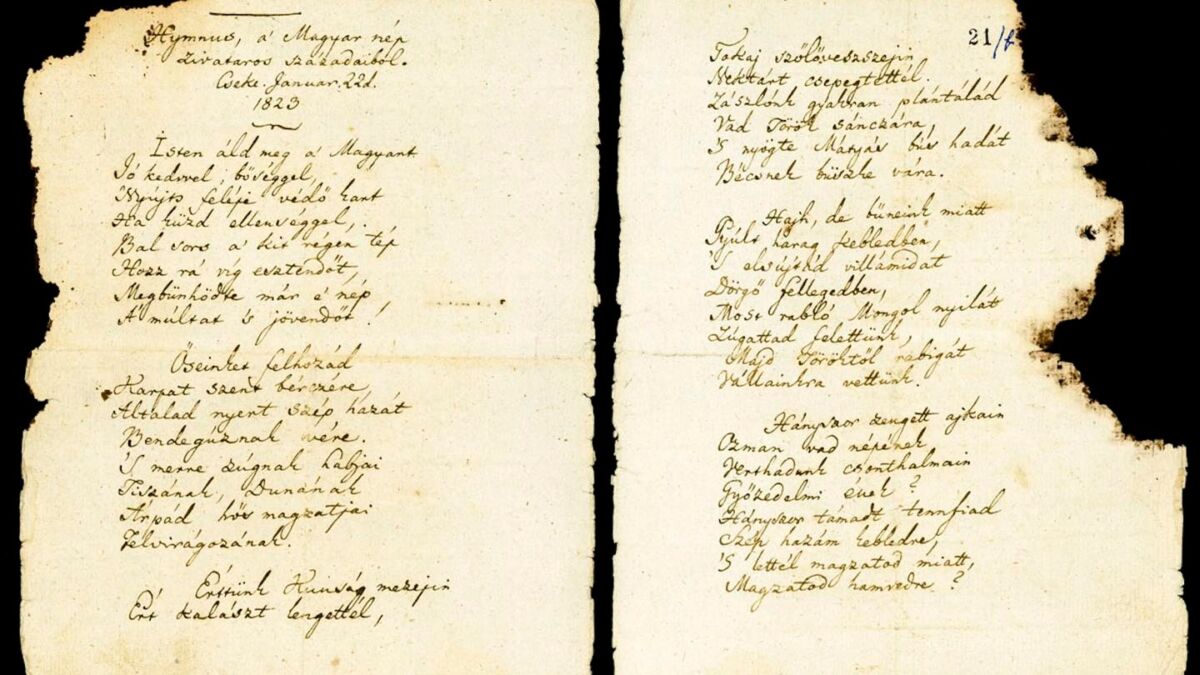 Hymnus, a' Magyar nép
zivataros századaiból.
Cseke. Januar. 22d.
1823
Isten áld meg a' Magyart
Jó kedvvel, bőséggel,
Nyújts feléje védő kart
Ha küzd ellenséggel,
Bal sors a' kit régen tép
Hozz rá víg esztendőt,
Megbűnhödte már e' nép
A' múltat 's jövendőt!
Őseinket felhozád
Kárpát szent bérczére,
Általad nyert szép hazát
Bendegúznak vére.
'S merre zúgnak habjai
Tiszának, Dunának
Árpád hős magzatjai
Felvirágozának.
Értünk Kunság mezején
Ért kalászt lengettél,
21/b
Tokaj szőlővesszein
Nektárt csepegtettél.
Zászlónk gyakran plántálád
Vad Török sánczára,
'S nyögte Mátyás bús hadát
Bécsnek büszke vára.
Hajh, de bűneink miatt
Gyúlt harag kebledben,
'S elsújtád villámidat
Dörgő fellegedben,
Most rabló Mongol nyilát
Zúgattad felettünk,
Majd Töröktől rabigát
Vállainkra vettünk.
Hányszor zengett ajkain
Ozman vad népének
Vert hadunk csonthalmain
Győzedelmi ének?
Hányszor támadt tennfiad
Szép hazám kebledre,
'S lettél magzatod miatt,
Magzatod hamvedre?